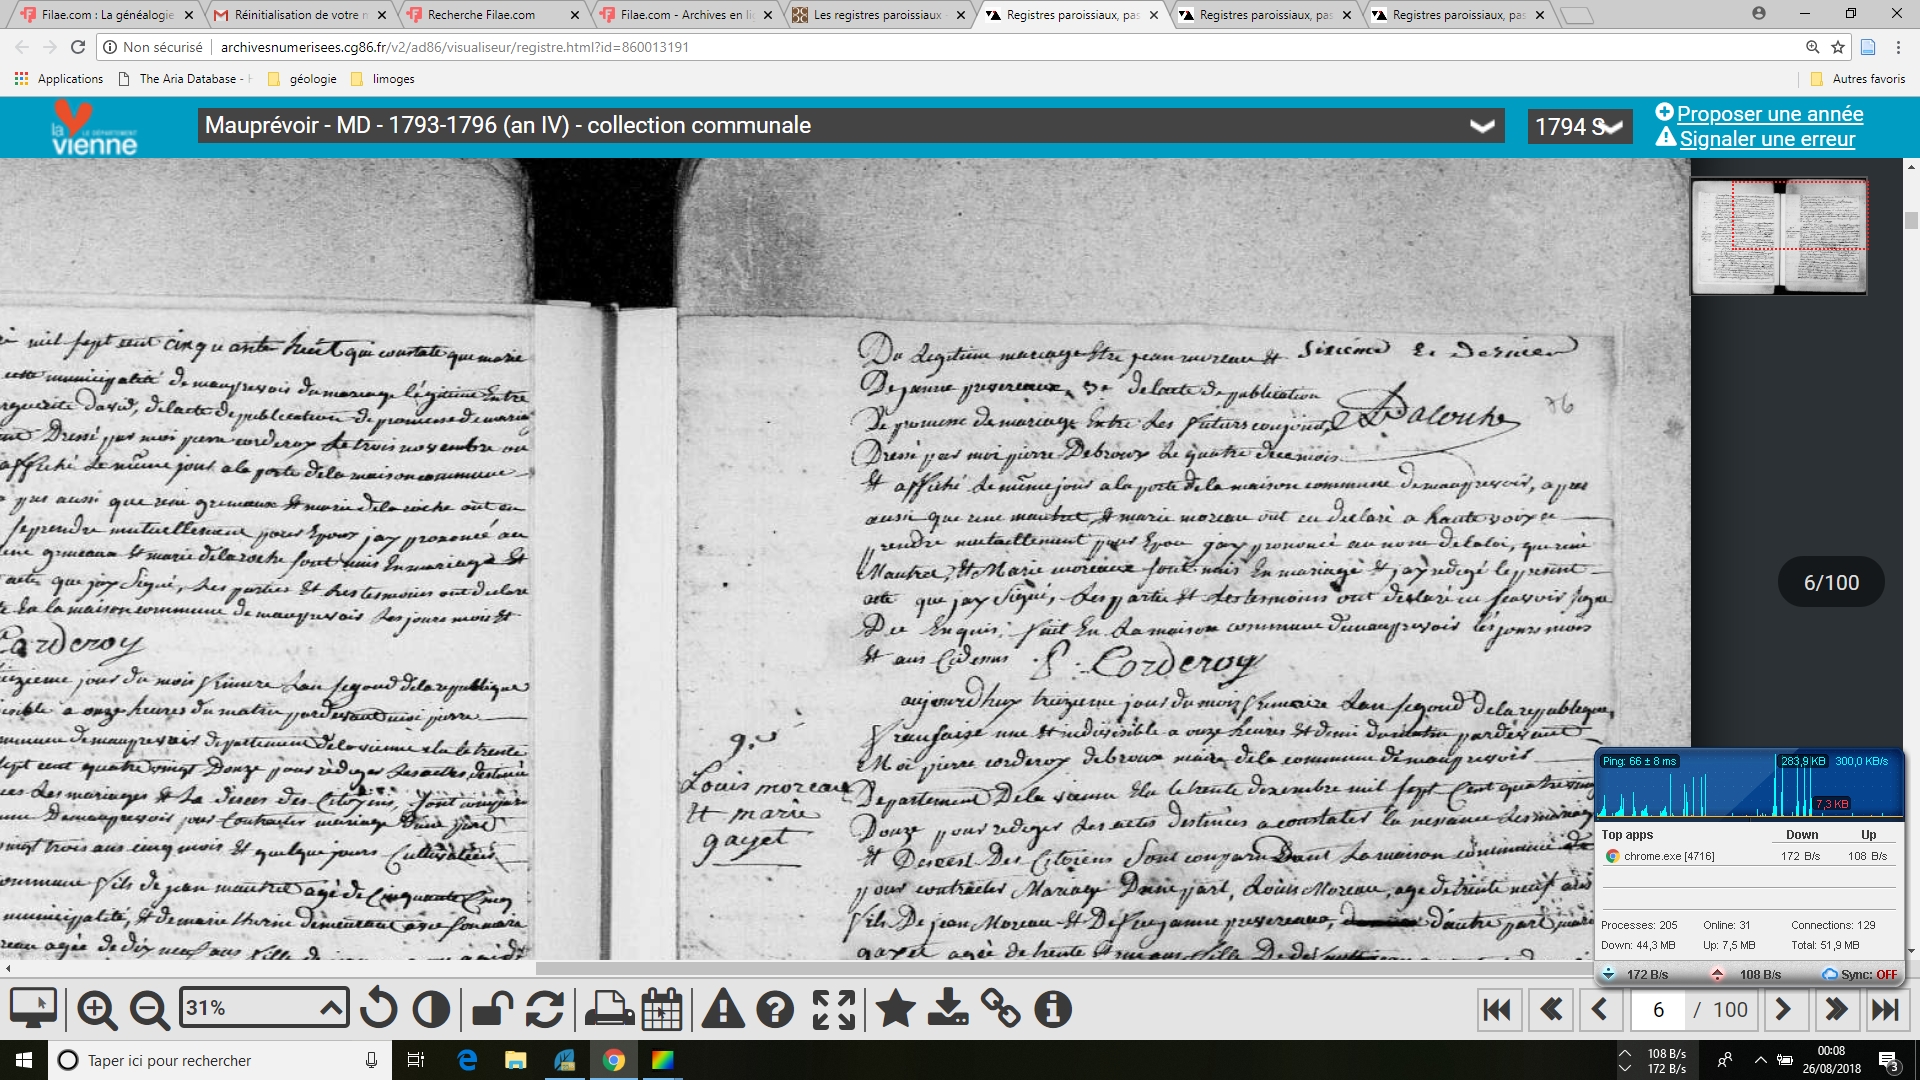 Filae.com : La généalogie
Réinitialisation de votre n
Recherche Filae.com
Filae.com - Archives en li
Les registres paroissiaux -
Registres paroissiaux, pas
Registres paroissiaux, pas
Registres paroissiaux, pas
Non sécurisé | archivesnumerisees.cg86.fr/v2/ad86/visualiseur/registre.html?id=860013191
Applications
The Aria Database - H
géologie
limoges
Autres favoris
la vienne
LE DÉPARTEMENT
Mauprévoir - MD - 1793-1796 (an IV) - collection communale
1794 S
Proposer une année
Signaler une erreur
mil sept cent cinquante huit qui constate que marie
municipalité de mauprevoir du mariage légitime Entre
david, de lacte de publication de promesse de maria
Dressé par moi pierre corderoy Le trois novembre
affiché Le même jour a la porte de la maison commune
aussi que grimaux Et marie delaroche ont
prendre mutuellement pour Epoux jay prononcé au
Et marie delaroche sont unis En mariage Et
que jay Signé, Les parties Et Les temoins ont declaré
En la maison commune de mauprevoir Les jours mois Et
Corderoy
jour du mois frimere Lan segond de la republique
a onze heures du matin pardevant moi pierre
de mauprevoir departement de la vienne elu le trente
sept cent quatre vingt Douze pour rediger Les actes destinés
Les mariages Et La deces des Citoyens, sont
De mauprevoir pour Contracter mariage Dune part
vingt trois ans cinq mois Et quelque jours Cultivateur
fils de jean mautret agé de Cinquante Cinq
municipalité, Et de marie
agée de dix neuf ans fille
Du Legitime mariage Etre jean moreau Et
Sixième Et Dernier
De janne de lacte de publication
De promesse de mariage Entre Les futurs conjoint,
76
Dressé par moi pierre Debroux Le quatre
Et affiché Le même jour a la porte de la maison commune de mauprevoir, apres
aussi que rené mautret, Et marie moreau ont eu declaré a haute voix se
prendre mutuellement pour Epou jay prononcé au nom de la loi, que rené
Mautret, Et Marie moreau sont unis En mariage Et jay redigé le present
acte que jay Signé, Les partie Et Les temoins ont declaré ne scavoir signé
De Enquis: fait En La maison commune de mauprevoir les jours mois
Et ans Cidessus P. Corderoy
aujourdhuy treizieme jours du mois frimaire Lan segond de la republique
française une Et indivisible a onze heures Et demi du matin pardevant
Moi pierre corderoy debroux maire de la commune de mauprevoir
Departement De la vienne Elu le trente decembre mil sept Cent quatre vingt
Douze pour rediger Les actes destinés a constater La nessance Les mariag
Et Deces Des Citoiens Sont comparu Dans La maison commune de
pour contracter Mariage Dune part, Louis Moreau, agé de trente neuf ans
fils De jean Moreau Et De janne d'autre part marie
gayet agée de trente
9.
Louis moreau
Et marie
gayet
6/100
Ping: 66 ± 8 ms
283,9 KB
300,0 KB/s
7,3 KB
Top apps Down Up
chrome.exe [4716] 172 B/s 108 B/s
Processes: 205 Online: 31 Connections: 129
Down: 44,3 MB Up: 7,5 MB Total: 51,9 MB
172 B/s 108 B/s Sync: OFF
31%
6 / 100
Taper ici pour rechercher
108 B/s
172 B/s
00:08
26/08/2018
3